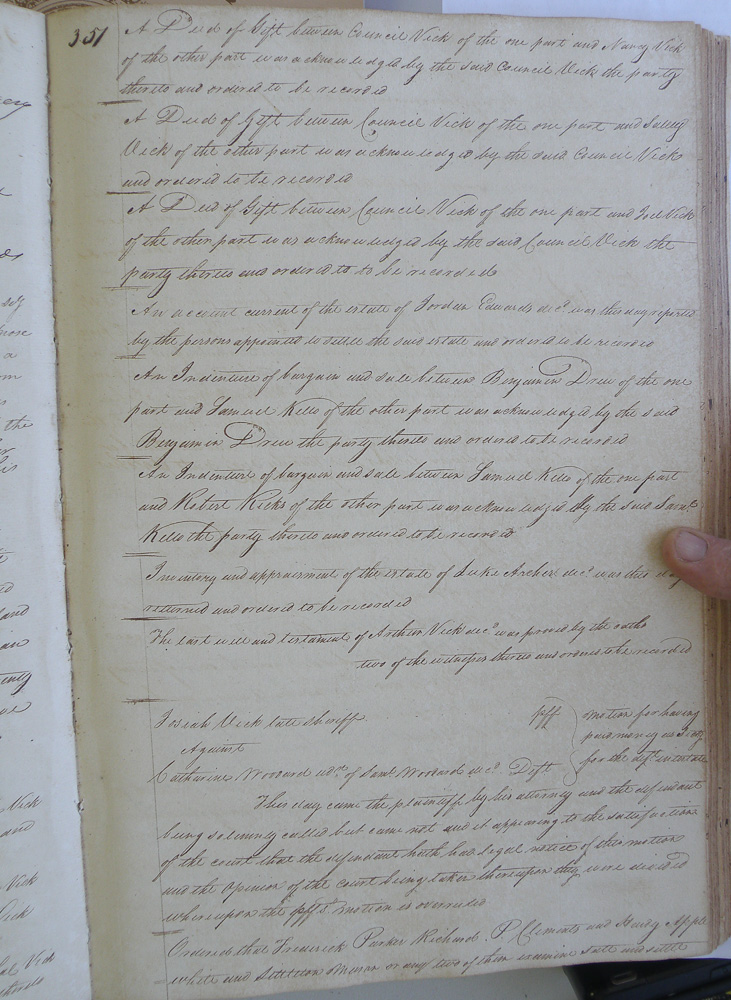 351
A Deed of Gift between Council Vick of the one part and Nancy Vick
of the other part was acknowledged by the said Council Vick the party
thereto and ordered to be recorded
A Deed of Gift between Council Vick of the one part and Salley
Vick of the other part was acknowledged by the said Council Vick
and ordered to be recorded
A Deed of Gift between Council Vick of the one part and Joel Vick
of the other part was acknowledged by the said Council Vick the
party thereto and ordered to to be recorded
An account current of the estate of Jordan Edwards decd. was this day reported
by the persons appointed to settle the said estate and ordered to be recorded
An Indenture of bargain and sale between Benjamin Drew of the one
part and Samuel Kello of the other part was acknowledged by the said
Benjamin Drew the party thereto and ordered to be recorded
An Indenture of bargain and sale between Samuel Kello of the one part
and Robert Ricks of the other part was acknowledged By the said Saml.
Kello the party thereto and ordered to be recorded
Inventory and appraisment of the estate of Luke Archer decd. was this day
returned and ordered to be recorded
The last will and testament of Arthur Vick decd. was proved by the oaths
two of the witnesses thereto and ordered to be recorded
Josiah Vick late Sheriff Plff
Against
Catharine Woodard adm. of Saml. Woodard decd. Deft
motion for having
paid money as
for the defts
This day came the plaintiff by his attorney and the defendant
being solemnly called but came not and it appearing to the satisfaction
of the court that the defendant hath had legal notice of this motion
and the opinion of the court being taken thereupon they were divided
whereupon the plffs motion is overruled
Ordered that Frederick Parker Richard P. Clements and Hardy Apple
white and or any two of them examine state and settle